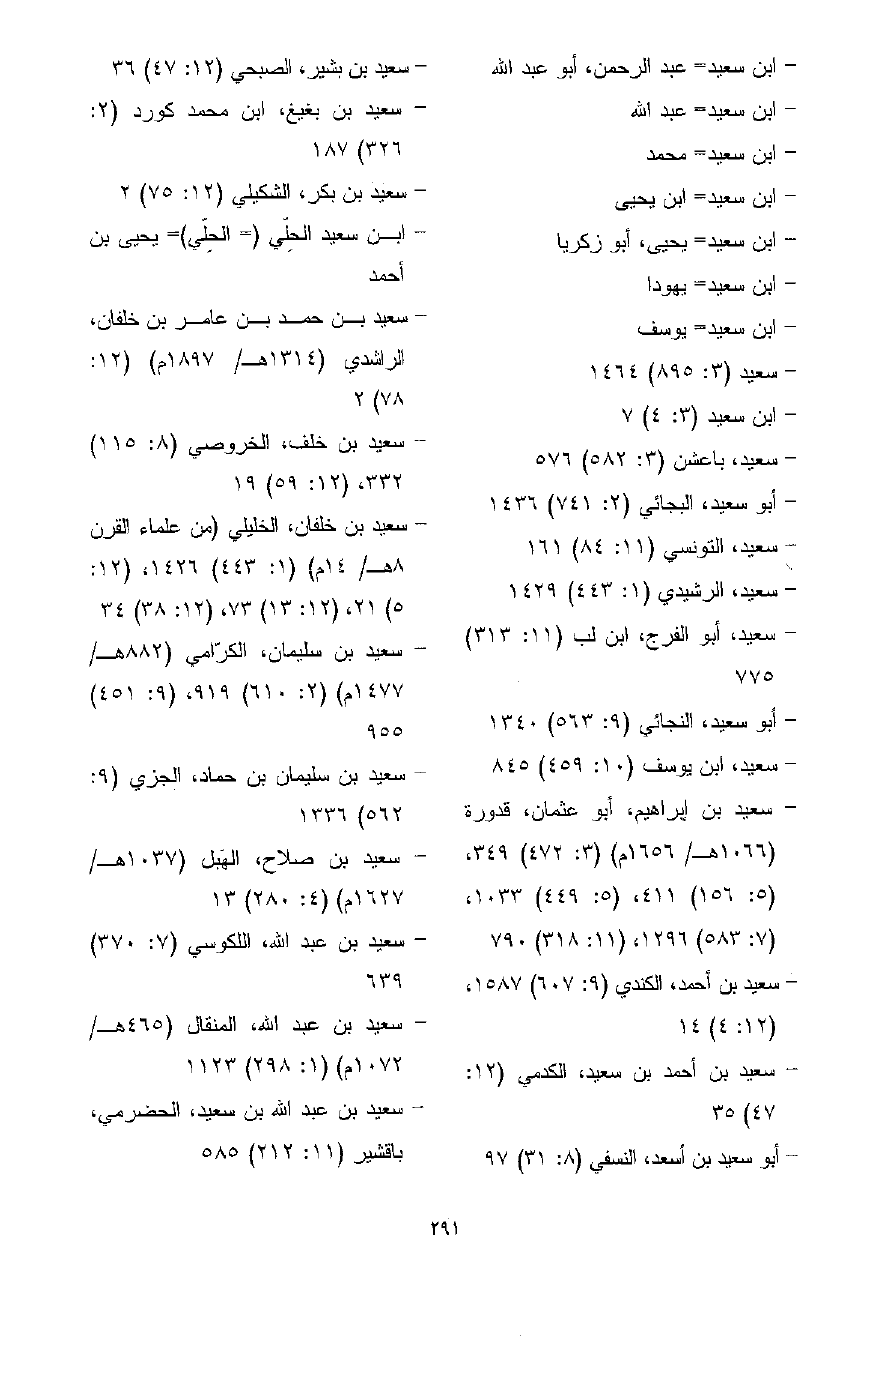 - ابن سعيد= عبد الرحمن، أبو عبد الله
- ابن سعيد= عبد الله
- ابن سعيد= محمد
- ابن سعيد= ابن يحيى
- ابن سعيد= يحيى، أبو زكريا
- ابن سعيد= يهودا
- ابن سعيد= يوسف
- سعيد (٣: ٨٩٥) ١٤٦٤
- ابن سعيد (٣: ٤) ٧
- سعيد، باعشن (٣: ٥٨٢) ٥٧٦
- أبو سعيد، البجائي (٢: ٧٤١) ١٤٣٦
- سعيد، التونسي (١١: ٨٤) ١٦١
- سعيد، الرشيدي (١: ٤٤٣) ١٤٢٩
- سعيد، أبو الفرج، ابن لب (١١: ٣١٣)
٧٧٥
- أبو سعيد، النجائي (٩: ٥٦٣) ١٣٤٠
- سعيد، ابن يوسف (١٠: ٤٥٩) ٨٤٥
- سعيد بن إبراهيم، أبو عثمان، قدورة
(١٠٦٦هـ/ ١٦٥٦م) (٣: ٤٧٢) ٣٤٩،
(٥: ١٥٦) ٤١١، (٥: ٤٤٩) ١٠٣٣،
(٧: ٥٨٣) ١٢٩٦، (١١: ٣١٨) ٧٩٠
- سعيد بن أحمد، الكندي (٩: ٦٠٧) ١٥٨٧،
(١٢: ٤) ١٤
- سعيد بن أحمد بن سعيد، الكدمي (١٢:
٤٧) ٣٥
- أبو سعيد بن أسعد، النسفي (٨: ٣١) ٩٧
- سعيد بن بشير، الصبحي (١٢: ٤٧) ٣٦
- سعيد بن بغيغ، ابن محمد كورد (٢:
٣٢٦) ١٨٧
- سعيد بن بكر، الشكيلي (١٢: ٧٥) ٢
- ابـن سعيد الحِلّي (= الحلّي)= يحيى بن
أحمد
- سعيد بـن حمـد بـن عامـر بن خلفان،
الراشدي (١٣١٤هـ/ ١٨٩٧م) (١٢:
٧٨) ٢
- سعيد بن خلف، الخروصي (٨: ١١٥)
٣٣٢، (١٢: ٥٩) ١٩
- سعيد بن خلفان، الخليلي (من علماء القرن
٨هـ/ ١٤م) (١: ٤٤٣) ١٤٢٦، (١٢:
٥) ٢١، (١٢: ١٣) ٧٣، (١٢: ٣٨) ٣٤
- سعيد بن سليمان، الكرّامي (٨٨٢هـ/
١٤٧٧م) (٢: ٦١٠) ٩١٩، (٩: ٤٥١)
٩٥٥
- سعيد بن سليمان بن حماد، الجزي (٩:
٥٦٢) ١٣٣٦
- سعيد بن صلاح، الهَبَل (١٠٣٧هـ/
١٦٢٧م) (٤: ٢٨٠) ١٣
- سعيد بن عبد الله، اللكوسي (٧: ٣٧٠)
٦٣٩
- سعيد بن عبد الله، المنقال (٤٦٥هـ/
١٠٧٢م) (١: ٢٩٨) ١١٢٣
- سعيد بن عبد الله بن سعيد، الحضرمي،
باقشير (١١: ٢١٢) ٥٨٥
٢٩١